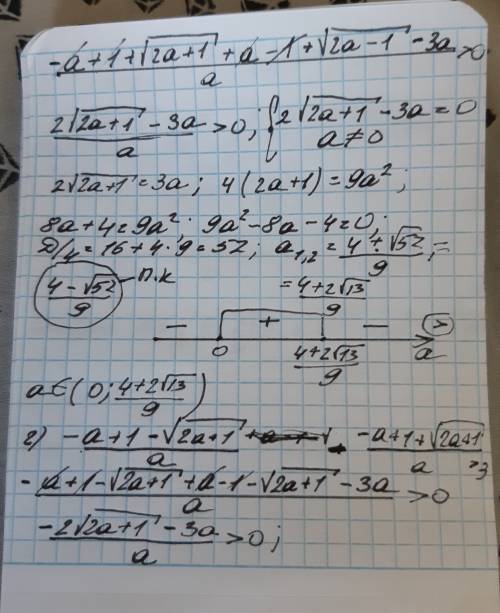 -a+1+√(2a+1) + a-1+√(2a-1) -3a / a >0
2√(2a+1) -3a / a >0; { 2√(2a+1) -3a=0
a≠0
2√(2a+1)=3a; 4(2a+1)=9a²;
8a+4=9a²; 9a²-8a-4=0;
D/4=16+4·9=52; a₁,₂= 4±√52 / 9 ;=
(4-√52)/9 - п.к = (4+2√13)/9
- + - >
0 (4+2√13)/9 a
a∈(0; (4+2√13)/9)
2) (-a+1-√(2a+1))/a - (-a+1+√(2a+1))/a >3
(-a+1-√(2a+1)+a-1-√(2a+1) -3a)/a >0
(-2√(2a+1) -3a)/a >0;